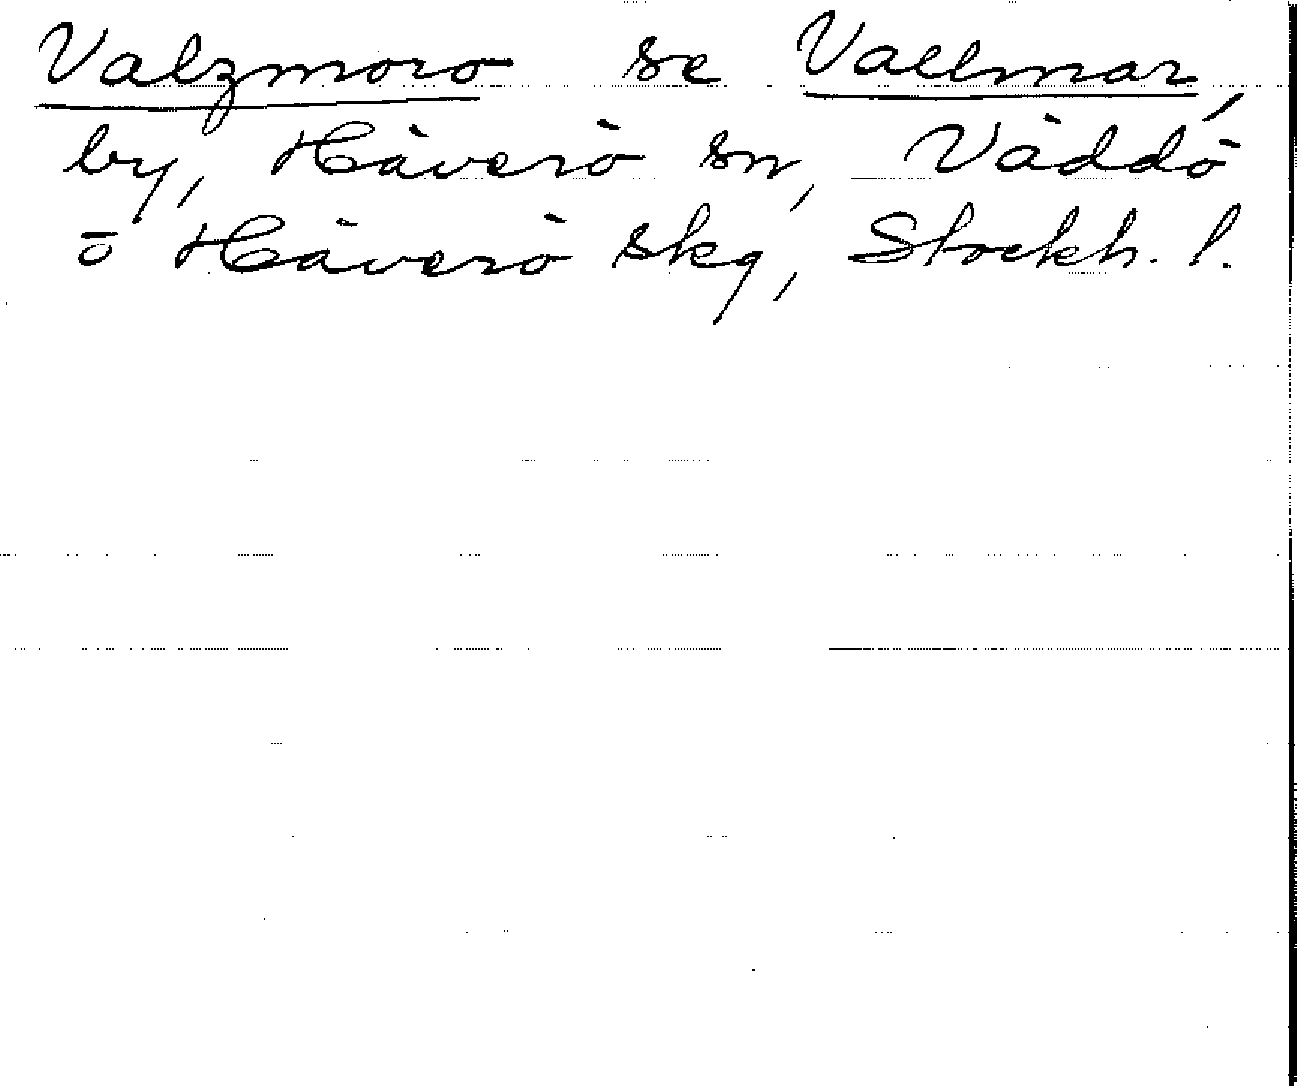 Valzmoro se Vallmar,
by, Häverö sn, Väddö
o Häverö skg, Stockh. l.